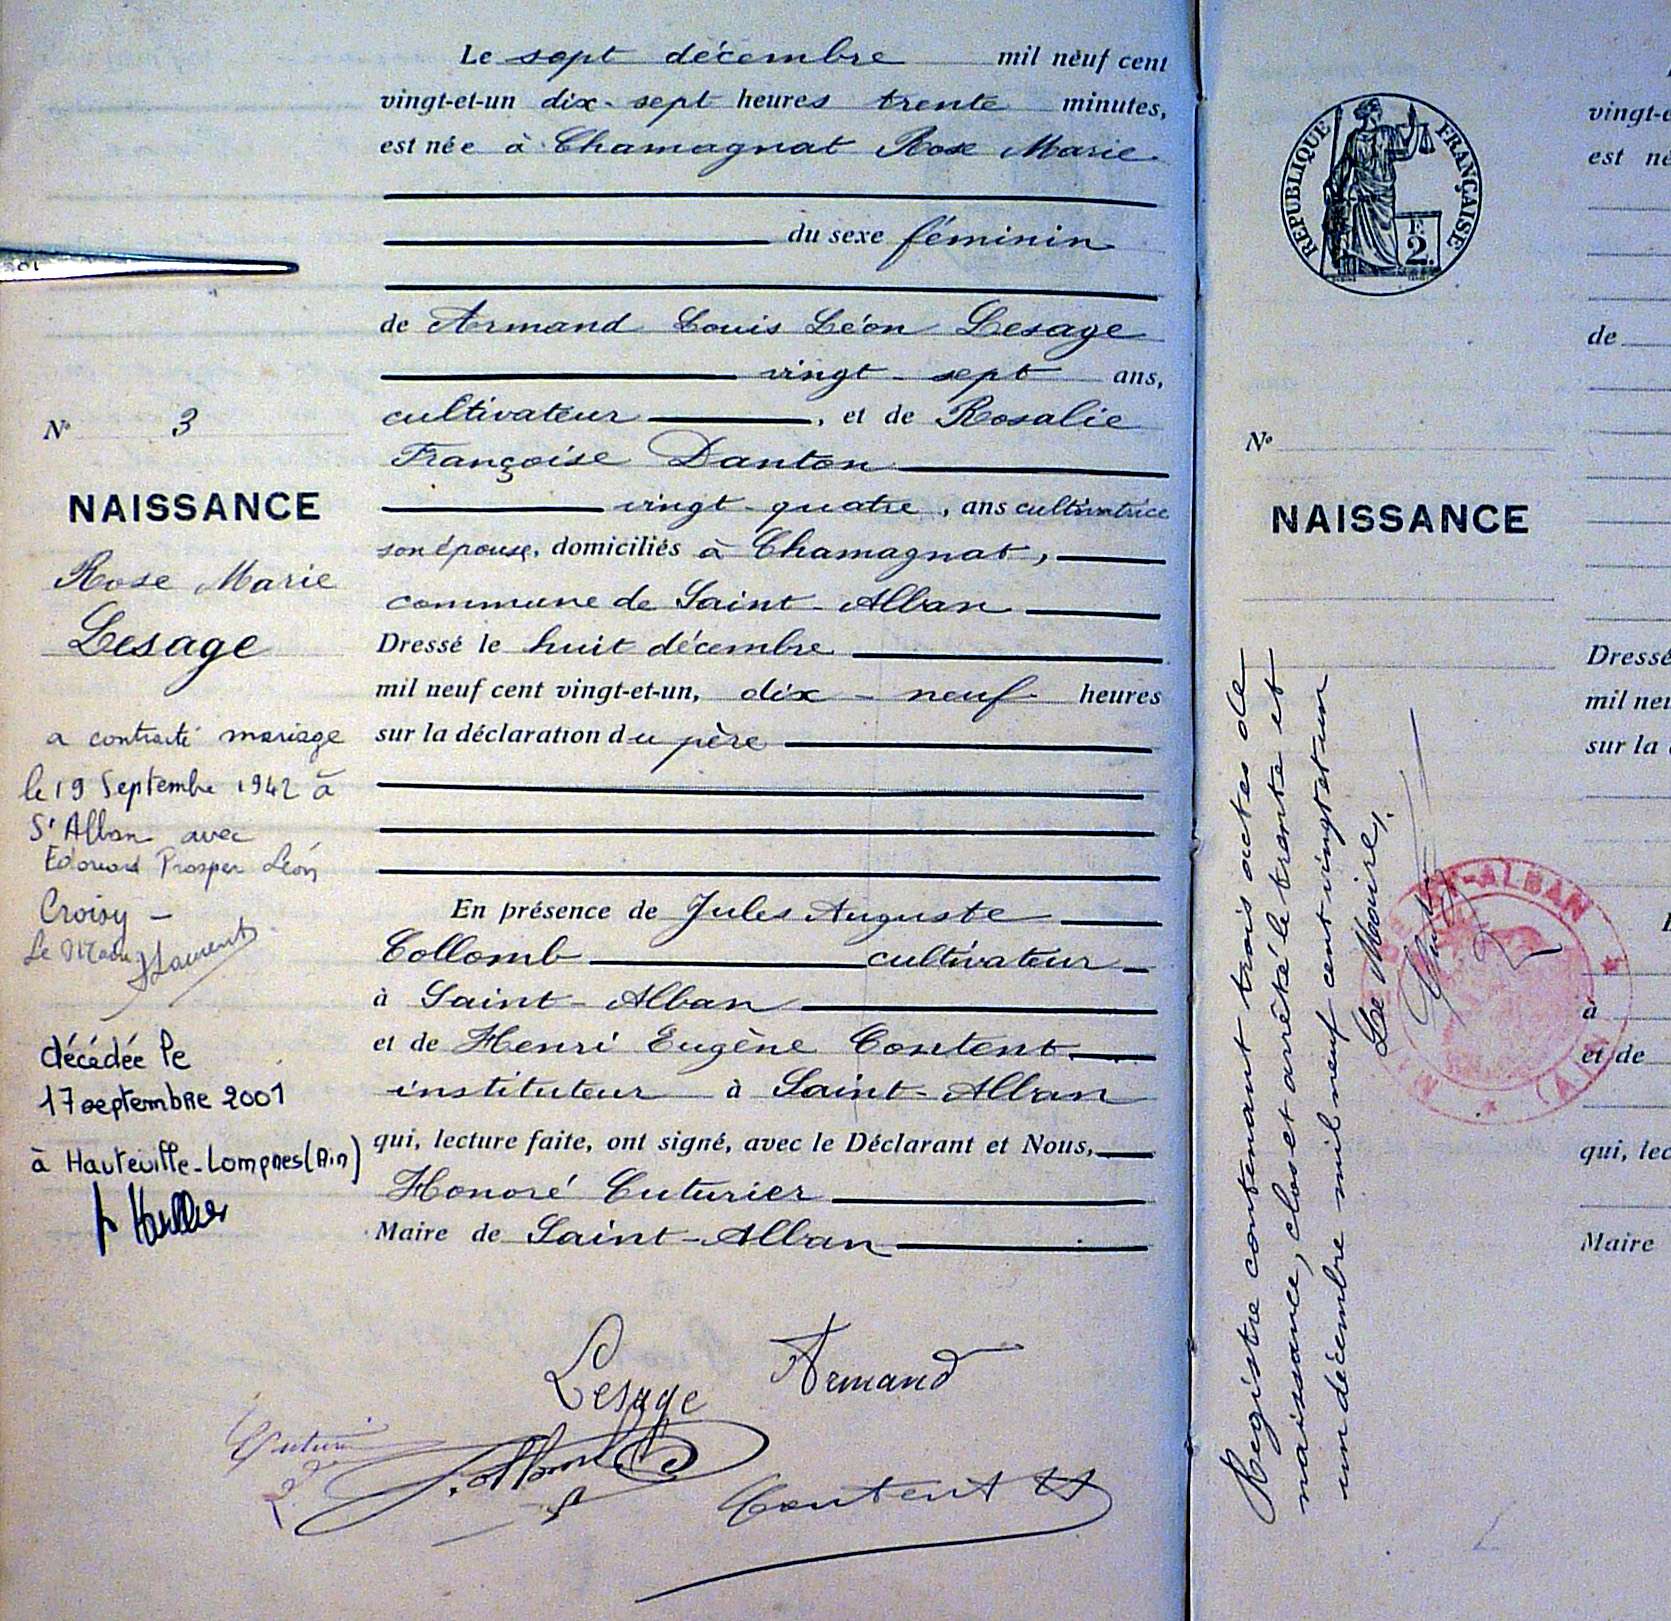 Le sept décembre mil neuf cent
vingt-et-un dix-sept heures trente minutes,
est née à Chamagnat Rose Marie
du sexe féminin
de Armand Louis Léon Lesage
vingt-sept ans,
cultivateur, et de Rosalie
Françoise Danton
vingt-quatre, ans cultivatrice
son épouse, domiciliés à Chamagnat,
commune de Saint-Alban
Dressé le huit décembre
mil neuf cent vingt-et-un, dix-neuf heures
sur la déclaration du père
En présence de Jules Auguste
Collomb cultivateur
à Saint-Alban
et de Henri Eugène Content
instituteur à Saint-Alban
qui, lecture faite, ont signé, avec le Déclarant et Nous,
Honoré Cuturier
Maire de Saint-Alban
Lesage Armand
Cuturier
J. Collomb
Content H
No 3
NAISSANCE
Rose Marie
Lesage
a contracté mariage
le 19 Septembre 1942 à
St Alban avec
Edouard Prosper Léon
Croisy
Le Maire Laurent
décédée le
17 septembre 2001
à Hauteville-Lompnes (Ain)
RÉPUBLIQUE FRANÇAISE
F.
2.
No
NAISSANCE
Registre contenant trois actes de
naissance, clos et arrêté le trente et
un décembre mil neuf cent vingt et un
Le Maire,
ST-ALBAN
(AIN)
vingt-e
est né
de
Dressé
mil neu
sur la
à
et de
qui, lec
Maire